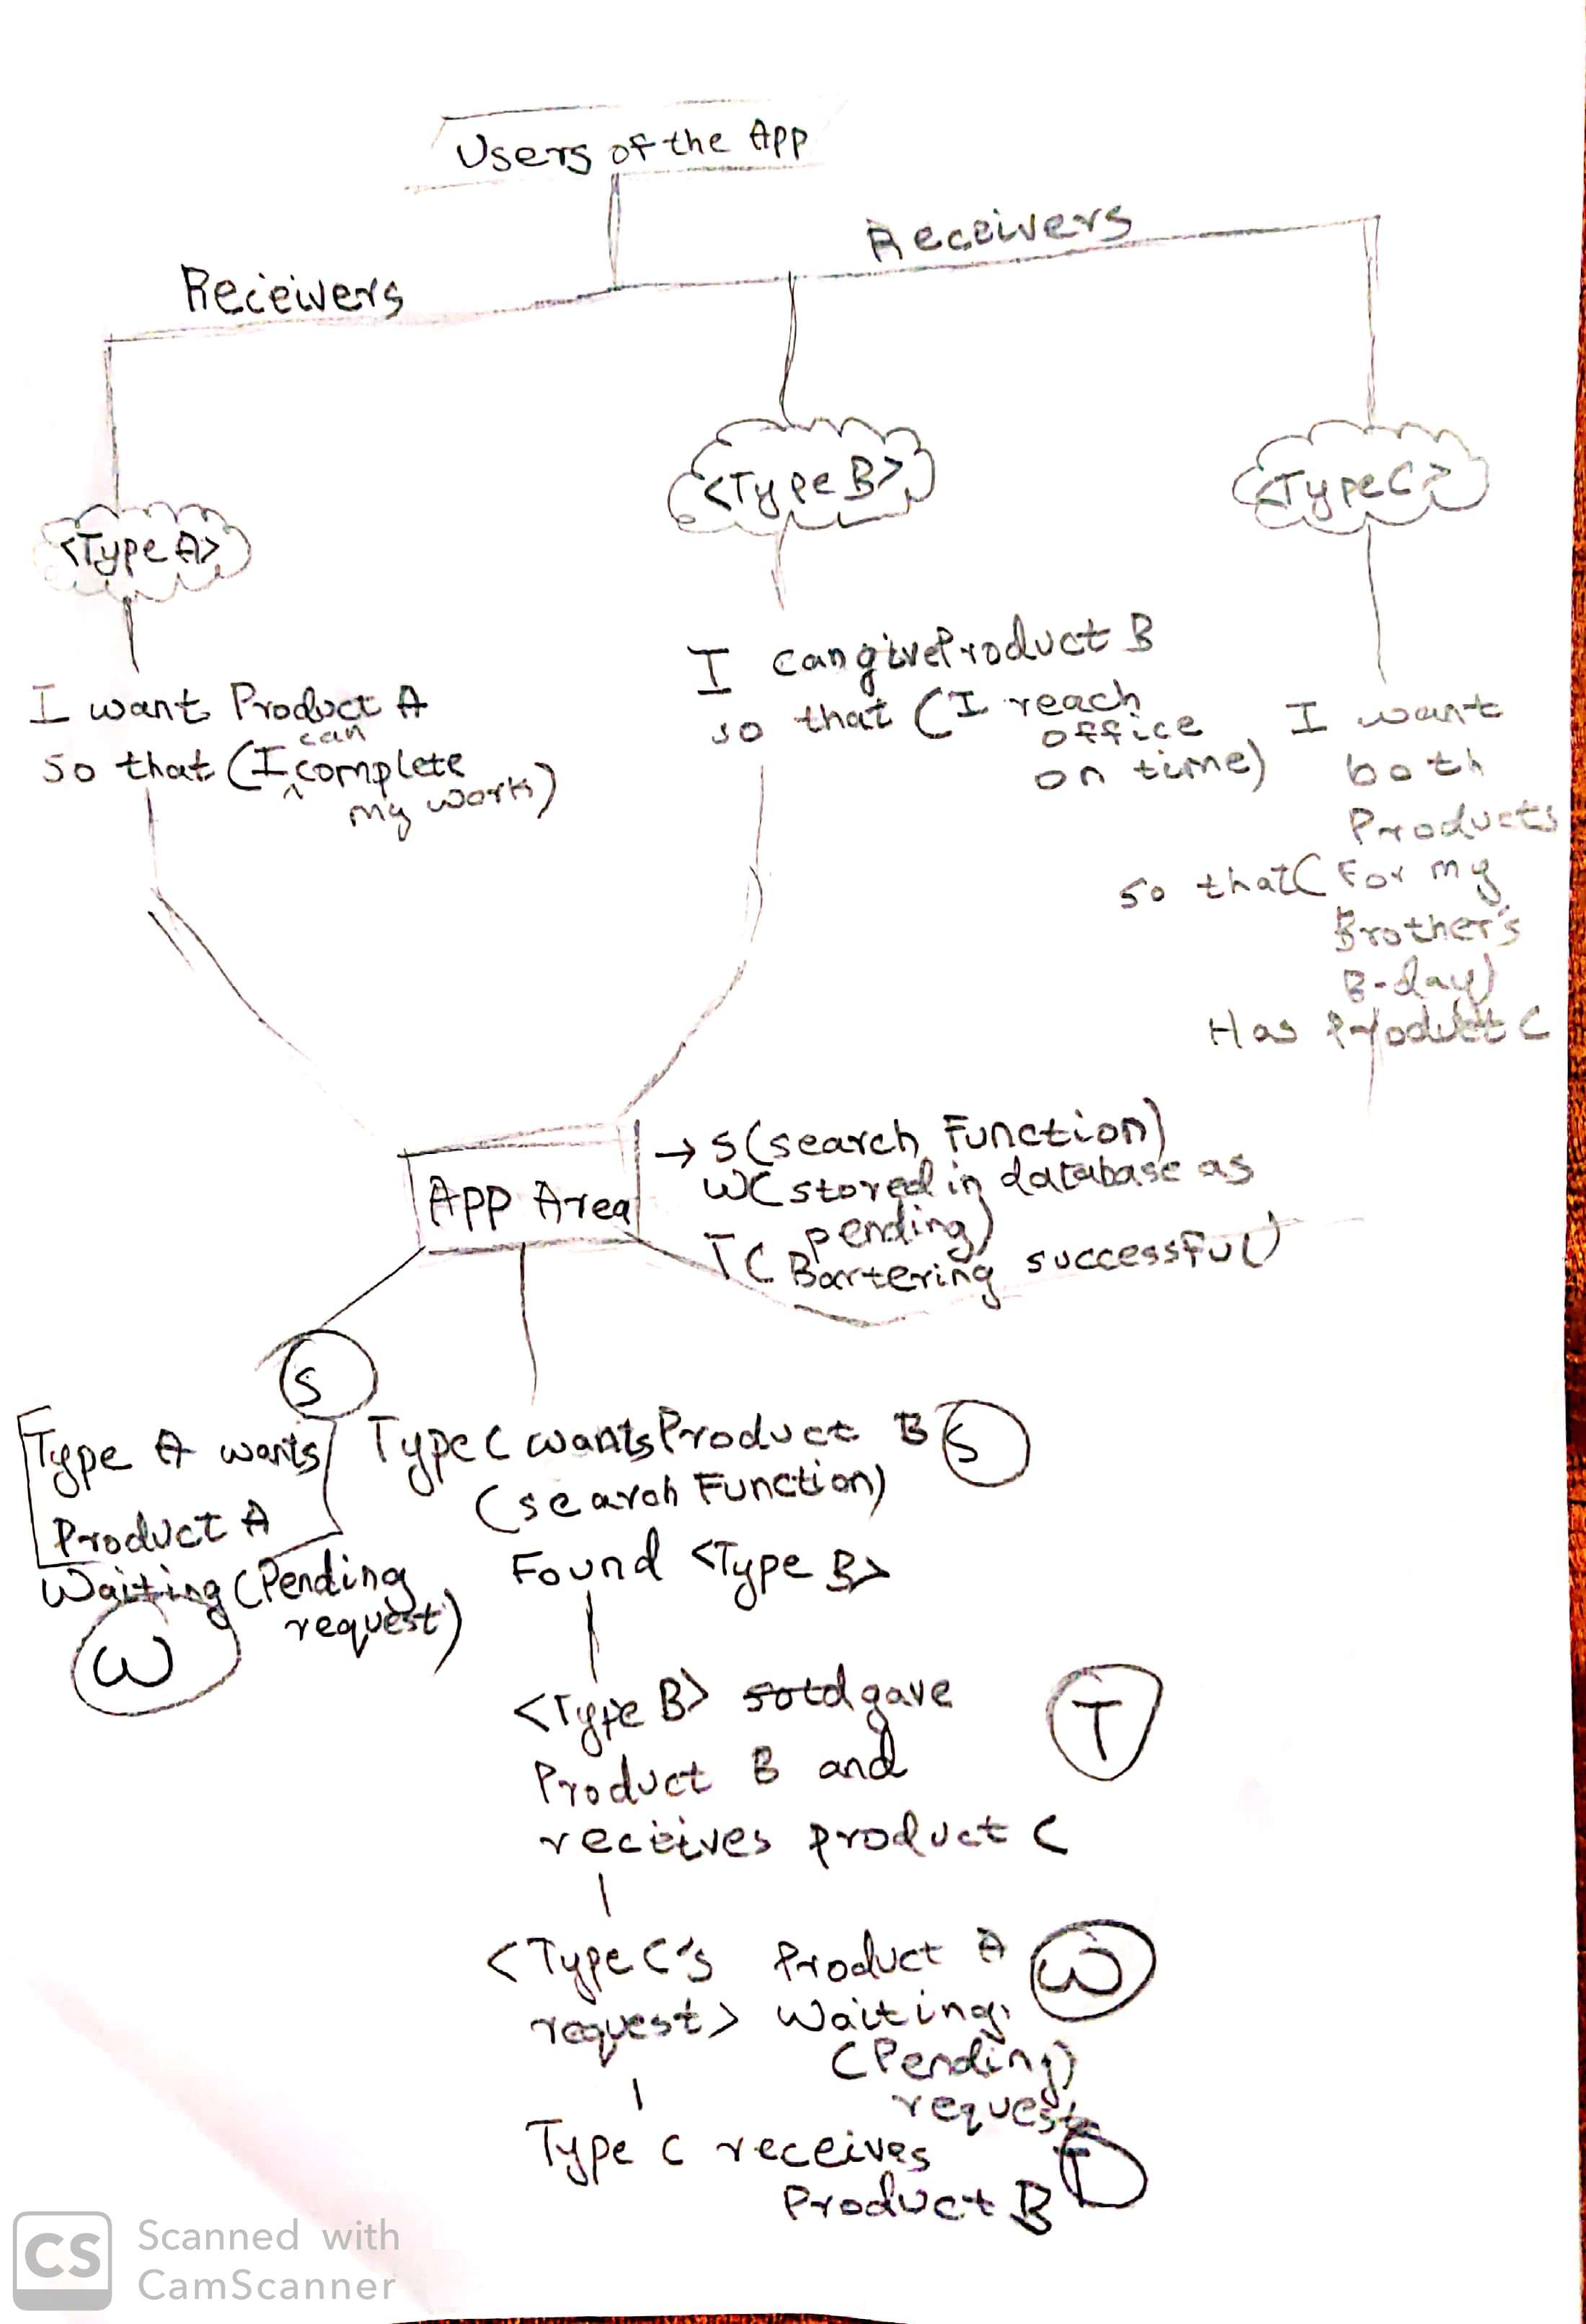 Users of the App
Receivers
Receivers
<Type A>
<Type B>
<Type C>
I want Product A
so that (I can complete
my work)
I can give Product B
so that (I reach
office
on time)
I want
both
Products
so that (For my
Brother's
B-day)
Has Product C
App Area
→ S(search Function)
W(stored in database as
pending)
T( Bartering successful)
S
Type A wants
Product A
Waiting (Pending
request)
W
Type C wants Product B S
(search Function)
Found <Type B>
<Type B> sold gave
T
Product B and
receives product C
<Type C's Product A W
request> Waiting.
(Pending)
request
Type C receives
T
Product B
CS
Scanned with
CamScanner